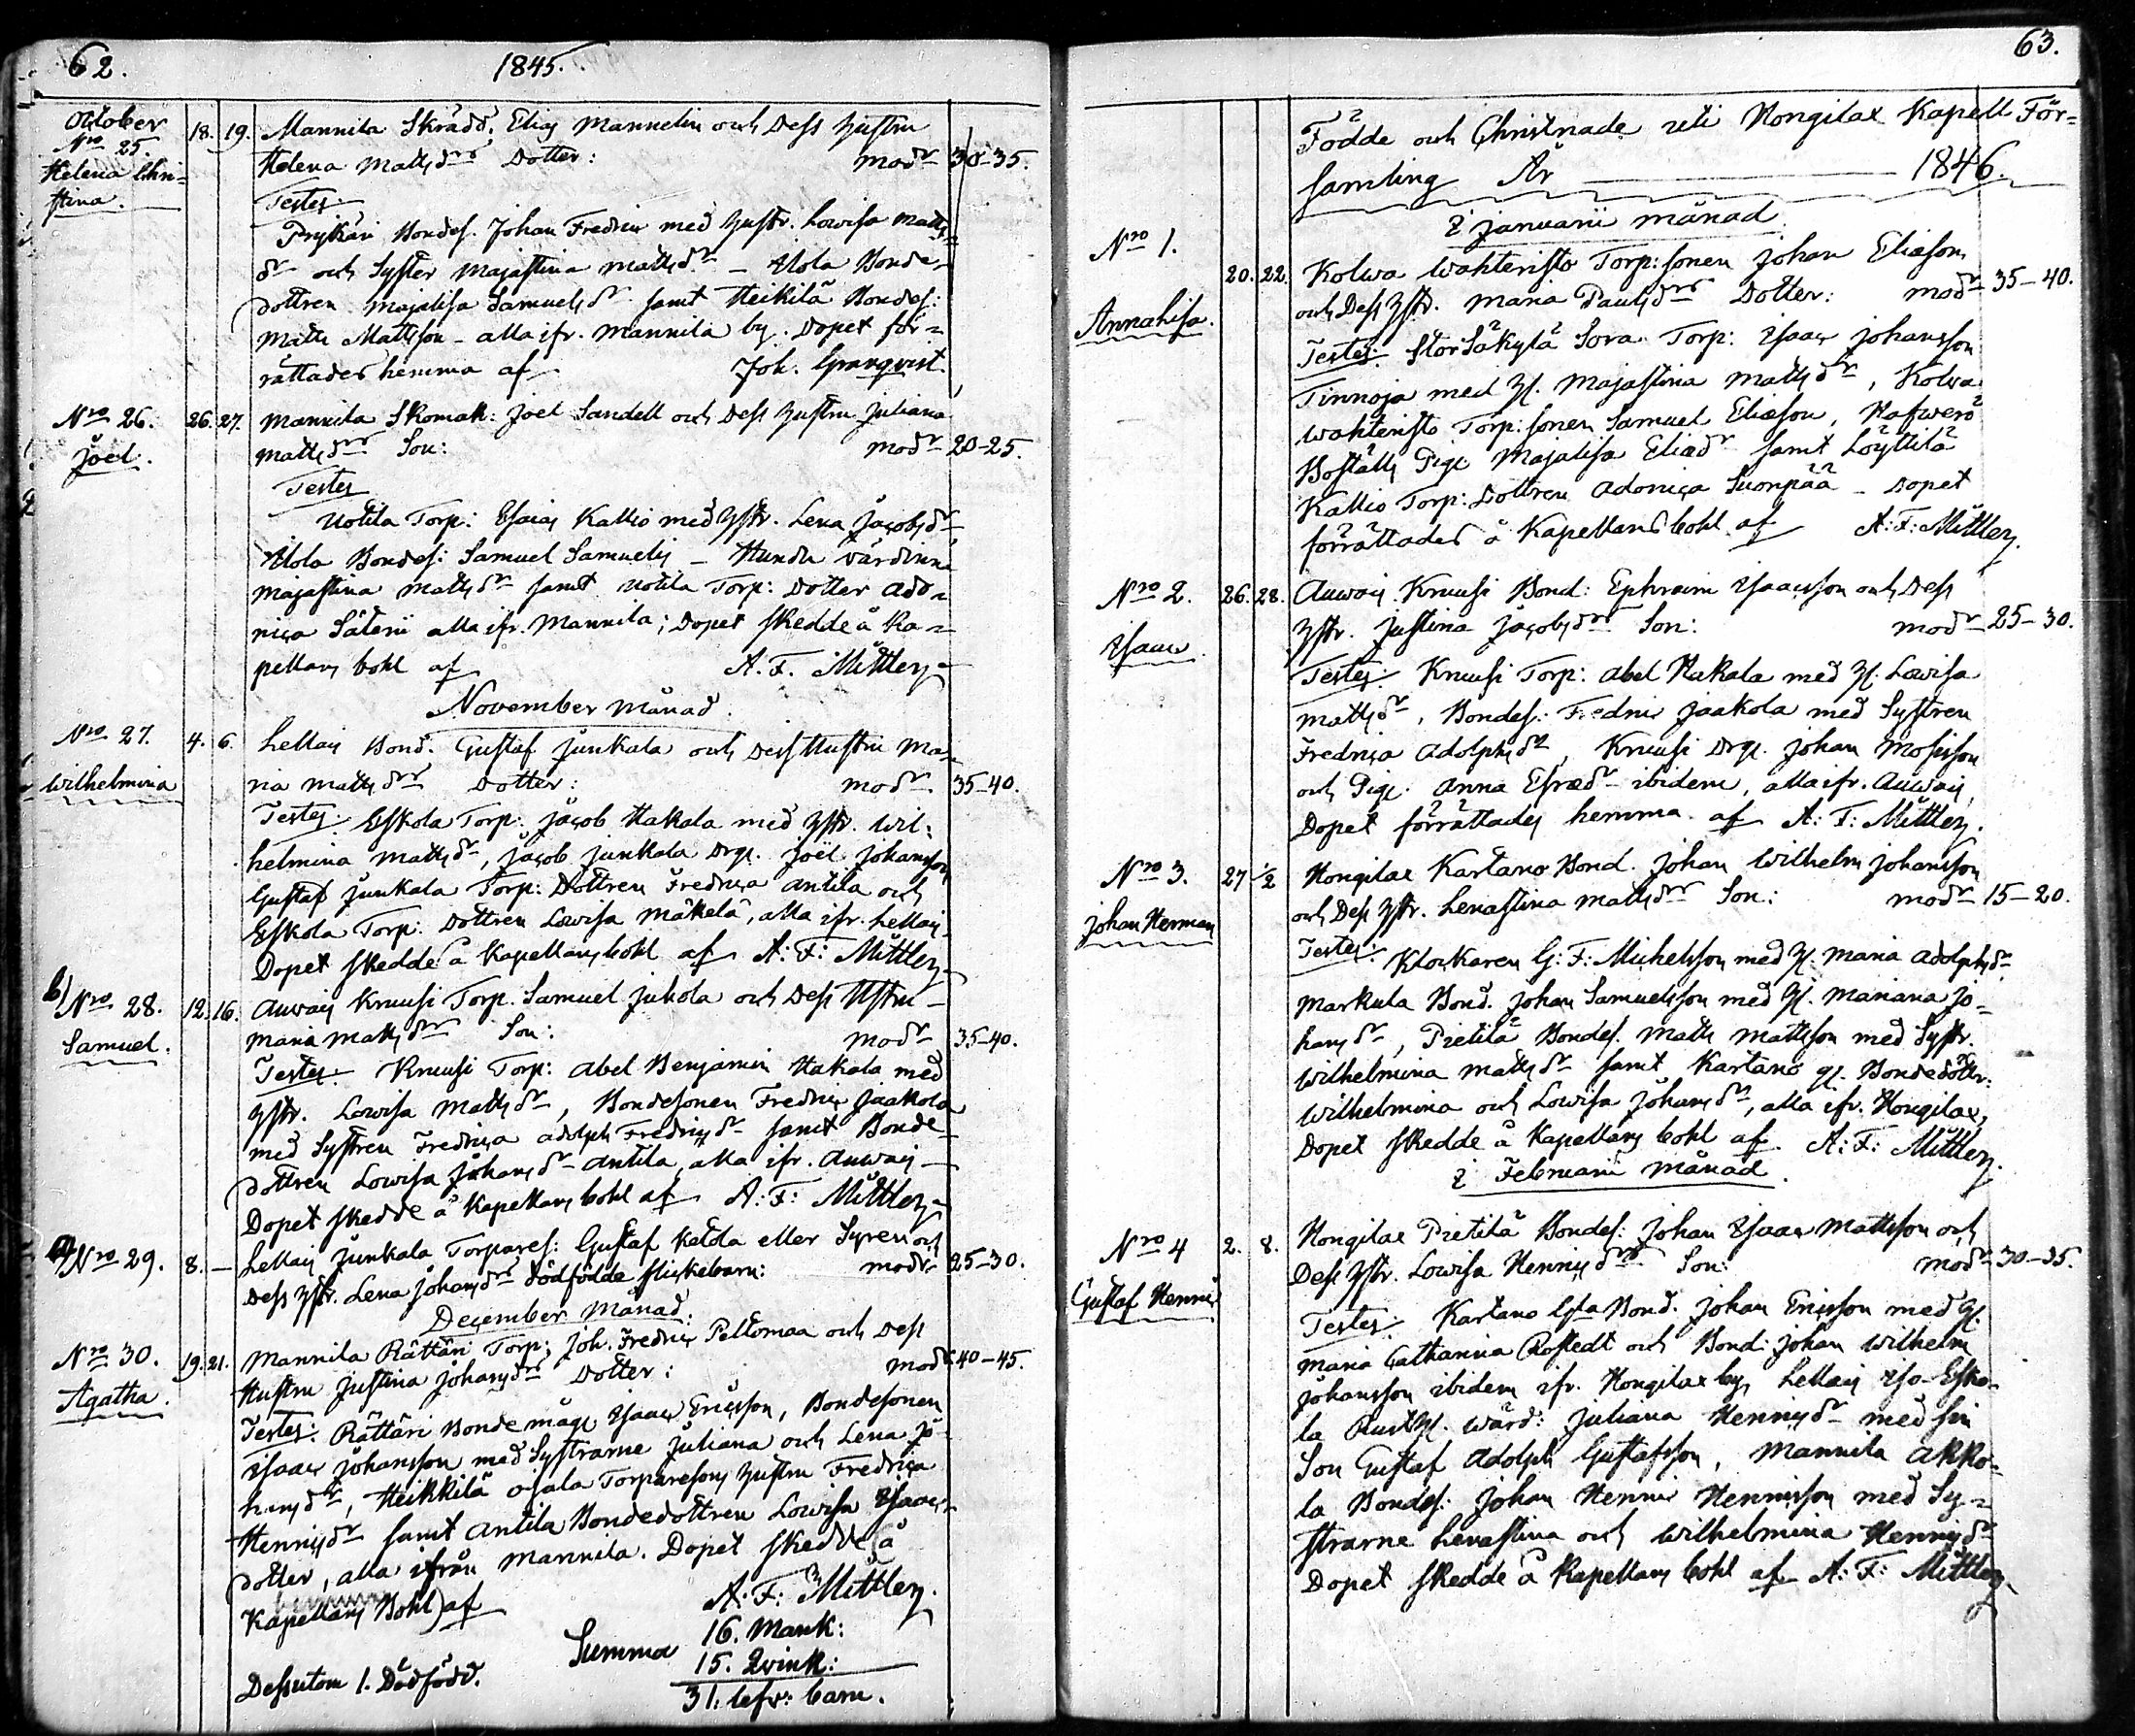 62.
1845.
October
Nro 25
Helena Chri=
stina.
18. 19. Mannila Skrädd. Elias Mannelin och Dess Hustru
Helena Matts dr Dotter: modr 30-35.
Testes
Prijkäri Bondes. Johan Fredric med Hustr. Lowisa Matts
dr och Syster Majastina Matts dr - Alola Bonde-
dottren Majalisa Samuels dr samt Heikilä Bondes:
Matts Mattsson - alla ifr. Mannila by. Dopet för=
rättades hemma af Joh. Granqvist.
Nro 26.
Joel.
26. 27. Mannila Skomak: Joel Sandell och Dess Hustru Juliana
Matts dr Son: modr 20-25.
Testes
Uotila Torp: Esaias Kallio med Hstr. Lena Jacobs dr,
Alola Bondes: Samuel Samuels - Hunda värdinna
Majastina Matts dr samt Uotila Torp: Dotter Ado=
nica Säteri alla ifr. Mannila; Dopet skedde å Ka=
pellans bohl af A. F. Mittler
November Månad.
Nro 27.
Wilhelmina
4. 6. Lellais Bond. Gustaf Junkala och Dess Hustru Ma=
ria Matts dr Dotter: modr. 35-40.
Testes. Eskola Torp: Jacob Hakala med Hstr. Wil=
helmina Matts dr, Jacob Junkala Drg. Joël Johansson
Gustaf Junkala Torp: Dottren Fredrica Antila och
Eskola Torp: Dottren Lowisa Mäkelä, alla ifr. Lellais.
Dopet skedde å Kapellans bohl af A: F: Mittler
b) Nro 28.
Samuel.
12. 16. Auwais Kruusi Torp. Samuel Jukola och Dess Hstru
Maria Matts dr Son: modr 35-40.
Testes. Kruusi Torp: Abel Benjamin Hakala med
Hstr. Lowisa Matts dr, Bondesonen Fredric Jaakola
med Systren Fredrica Adolph Fredrics dr samt Bonde
dottren Lowisa Johans dr Antila, alla ifr. Auwais
Dopet skedde å Kapellans bohl af A: F: Mittler
a) Nro 29. 8. - Lellais Junkala Torpares: Gustaf Ketola eller Syren och
Dess Hstr. Lena Johans dr Dödfödde flickebarn: modr 25-30.
December Månad.
Nro 30.
Agatha.
19. 21. Mannila Rättäri Torp: Joh. Fredric Peltomaa och Dess
Hustru Justina Johans dr Dotter: modr 40-45.
Testes. Rättäri Bonde måge Isaac Ericsson, Bondesonen
Isaac Johansson med Systrarne Juliana och Lena Jo-
hans dr, Heikkilä Ojala Torparesons Hustru Fredrica
Henrics dr samt Antila Bondedottren Lowisa Isaacs
dotter, alla ifrån Mannila. Dopet skedde å
Kapellans Bohl af A. F. Mittler.
Summa 16. Mank:
15. Qvink:
Dessutom 1. Dödfödd. 31. lefv: barn.
63.
Födde och Christnade uti Hongilax Kapell För=
samling År 1846.
i Januarii Månad
Nro 1.
Annalisa.
20. 22. Kolwa Wahteristo Torp: Sonen Johan Eliason
och Dess Hstr. Maria Pauls dr Dotter: modr 35-40.
Testes: Stor Säkylä Sova Torp: Isaac Johansson
Tinnoja med H. Majastina Matts dr, Kolwa
Wahteristo Torp: Sonen Samuel Eliason, Hafwerö
Boställs Pig: Majalisa Elias dr samt Löyttilä
Kallio Torp: Dottren Adonica Suonpää - Dopet
förrättades å Kapellans bohl af A: F: Mittler.
Nro 2.
Isaac.
26. 28. Auwais Kruusi Bond: Ephraim Isaacsson och Dess
Hstr. Justina Jacobs dr Son: modr 25-30.
Testes: Kruusi Torp: Abel Hakala med H. Lowisa
Matts dr, Bondes: Fredric Jaakola med Systren
Fredrica Adolphs dr, Kruusi Drg. Johan Mosisson
och Pig. Anna Esræ dr ibidem, alla ifr. Auwais,
Dopet förrättades hemma af A: F: Mittler.
Nro 3.
Johan Herman
27 1/2 Hongilax Kartano Bond. Johan Wilhelm Johansson
och Dess Hstr. Lenastina Matts dr Son: modr 15-20.
Testes: Klockaren G: F: Michelsson med H. Maria Adolphs dr
Markula Bond. Johan Samuelsson med H. Mariana Jo-
hans dr, Pietilä Bondes. Matts Mattsson med Systr.
Wilhelmina Matts dr samt Kartano gl. Bondedöttr:
Wilhelmina och Lowisa Johans dr, alla ifr. Hongilax,
Dopet skedde å Kapellans bohl af. A: F: Mittler.
i Februarii Månad.
Nro 4
Gustaf Henric
2. 8. Hongilax Pietilä Bondes: Johan Isaac Mattsson och
Dess Hstr. Lowisa Henrics dr Son: modr 30-35.
Testes. Kartano Bond. Johan Ericsson med H.
Maria Catharina Rostedt och Bond: Johan Wilhelm
Johansson ibidem ifr. Hongilax by, Lellais Iso-Esko-
la Rusth. Wärd: Juliana Henrics dr med sin
Son Gustaf Adolph Gustafsson, Mannila Akko-
la Bondes: Johan Henric Henricsson med Sy=
strarne Lenastina och Wilhelmina Henrics dr
Dopet skedde å Kapellans bohl af A: F: Mittler